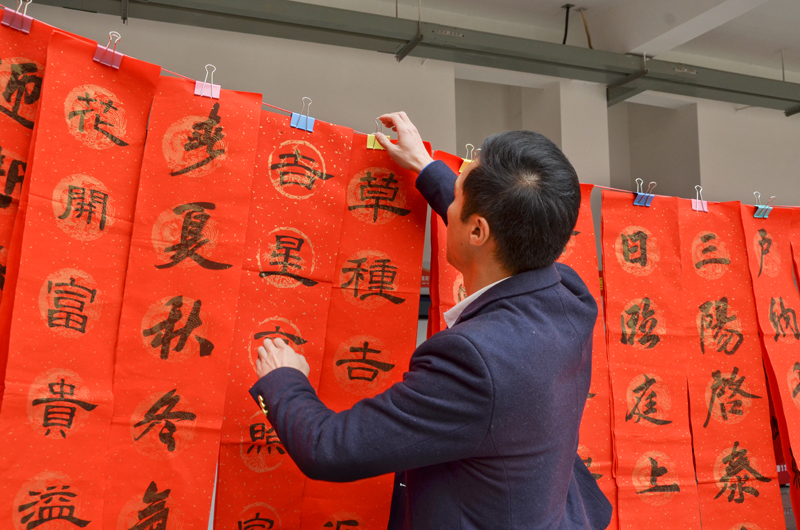 迎
花開富貴溢
春夏秋冬氣
吉星高照
草種吉
日庭上
三陽啓泰
戶納